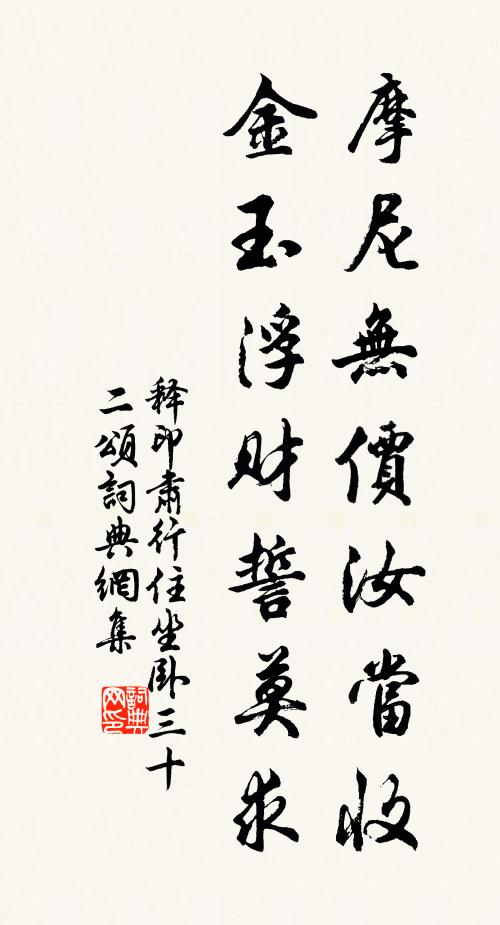 摩尼無價汝當收
金玉浮财誓莫求
释印肃行住坐卧三十
二頌詞典網集
詞典网印